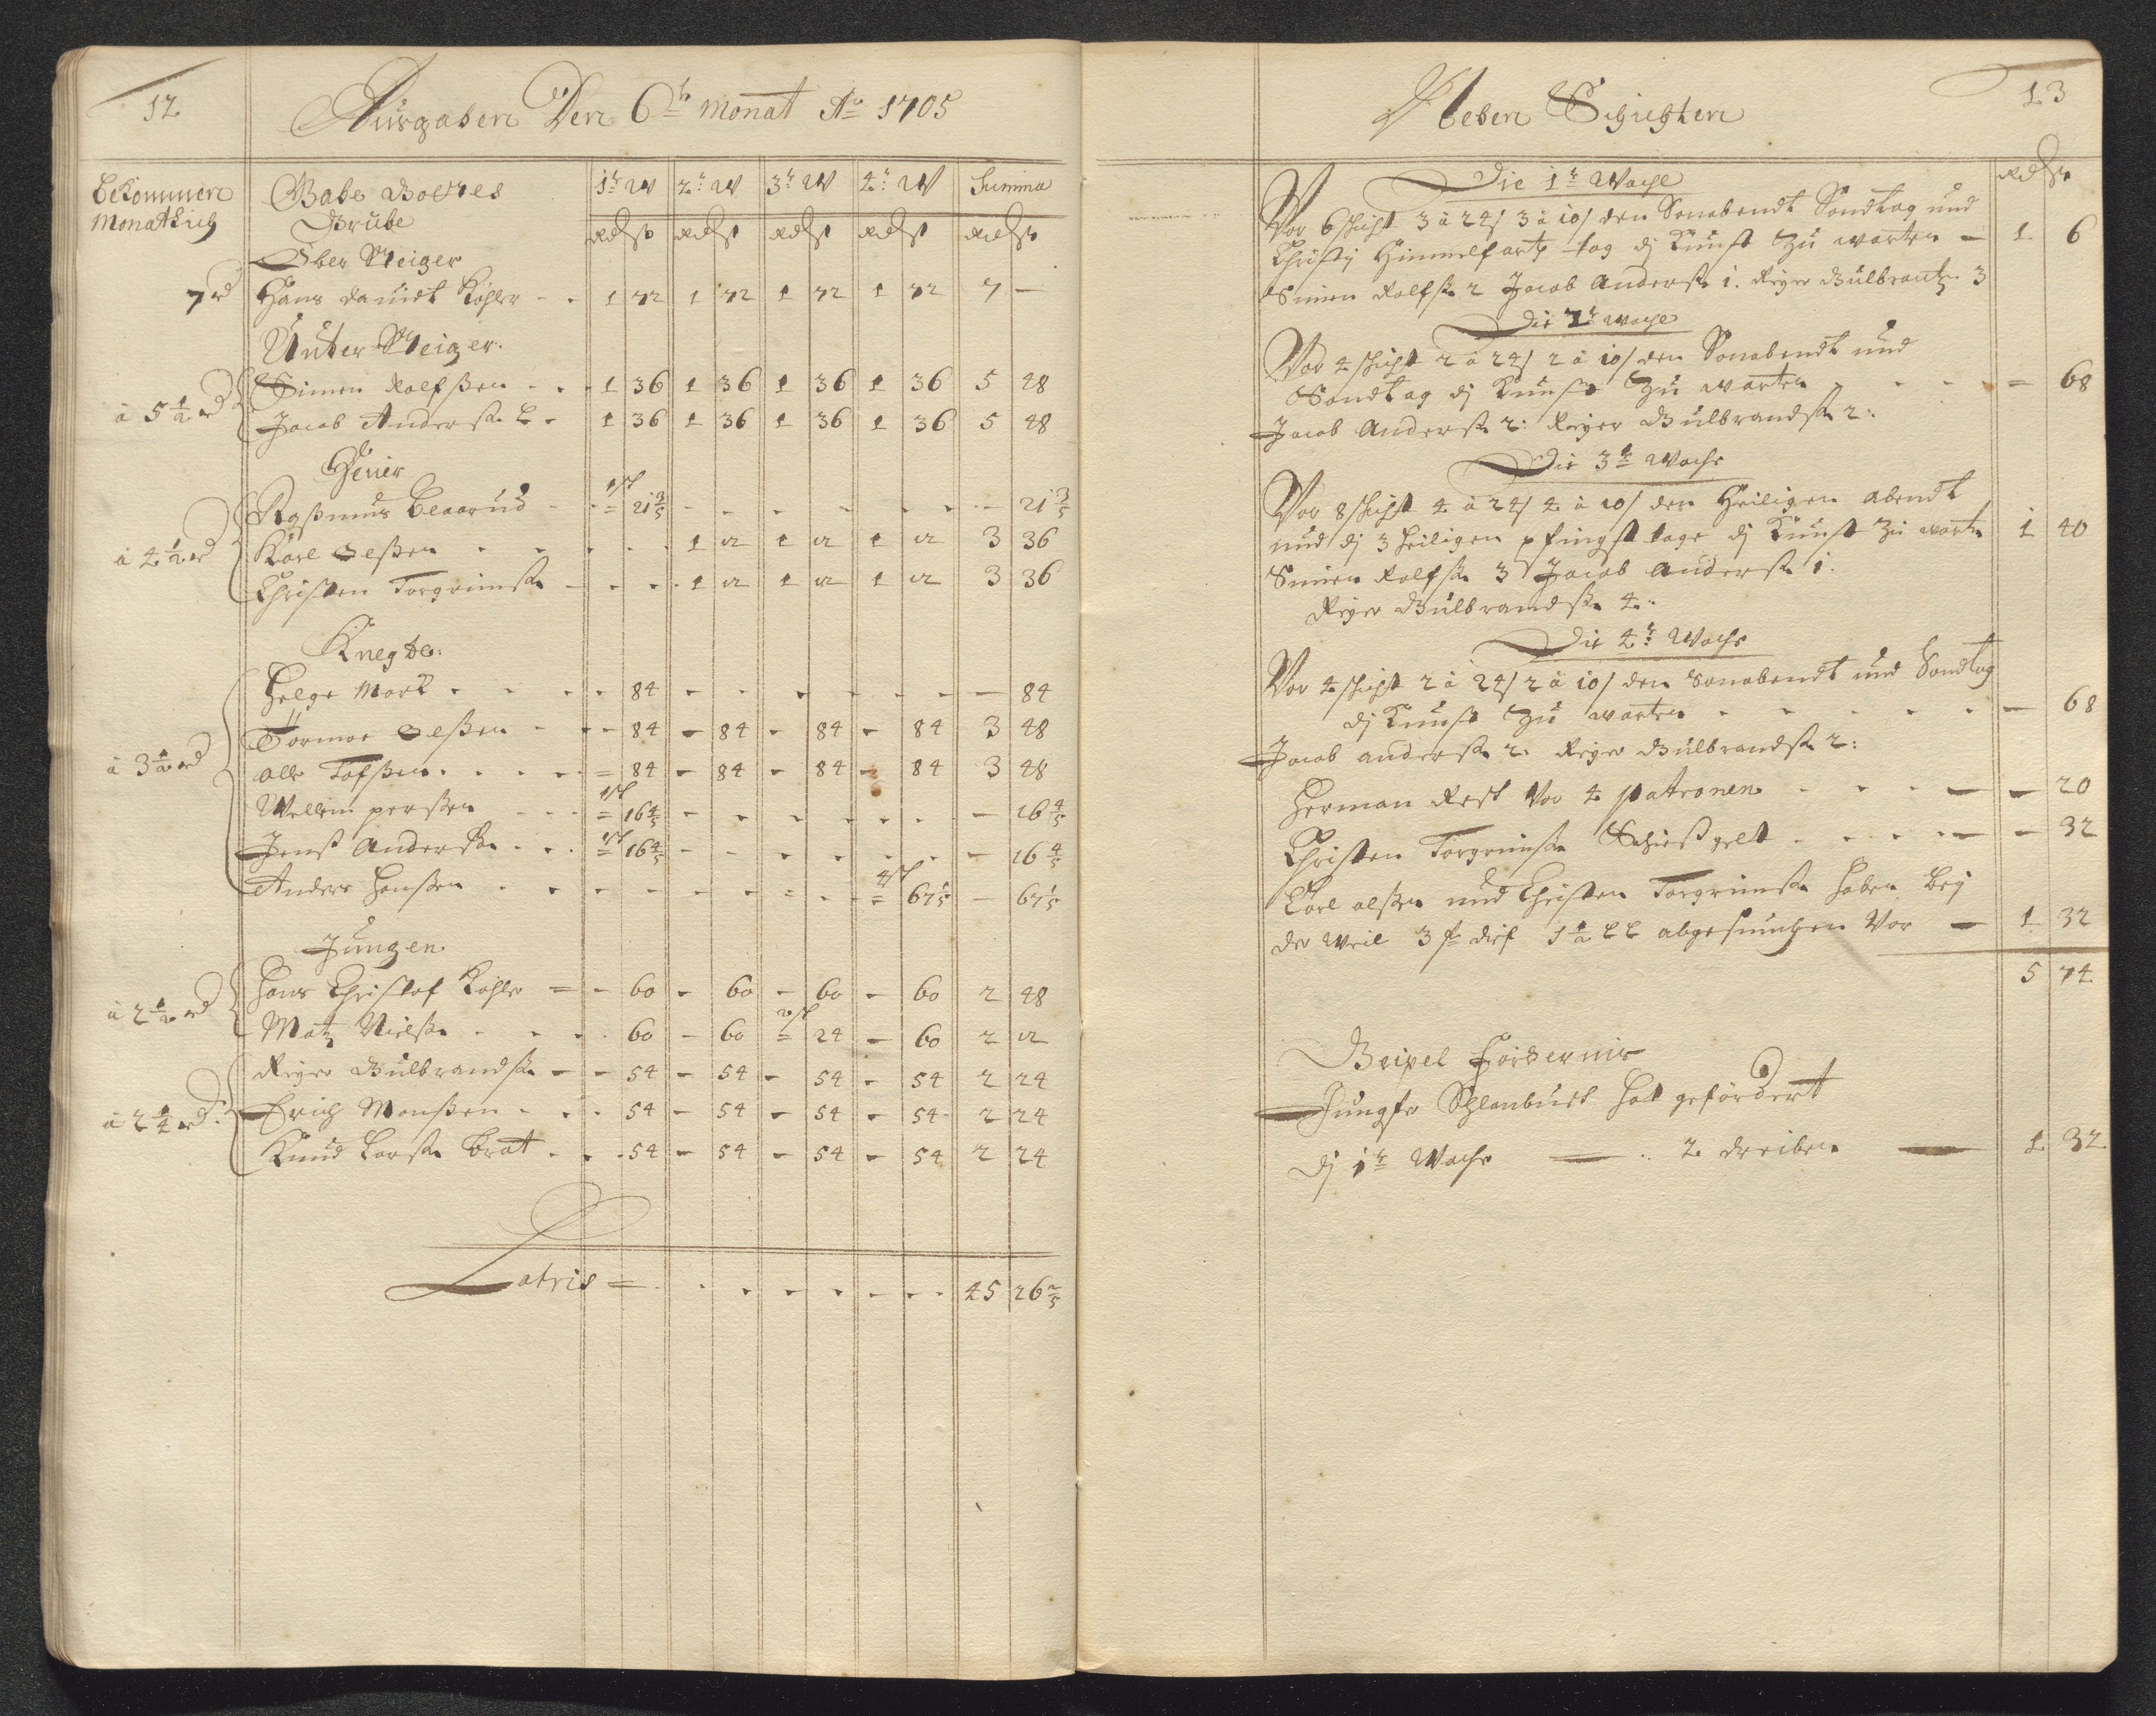 12
Ausgaben Den 6ten Monat Ao 1705
Bekommen Monathlich
Gabe Gottes Grube
1r W 2r W 3r W 4r W Summa
Rd ß Rd ß Rd ß Rd ß Rd ß
Ober Steiger
7 rd Hans David Köhler - - 1 72 1 72 1 72 1 72 7 —
Unter Steiger:
à 5 1/2 rd Simen Rolfßen - - 1 36 1 36 1 36 1 36 5 48
Jacob Anderß. L - 1 36 1 36 1 36 1 36 5 48
Heuer
à 4 1/2 rd Rasmus - - = 21 3/5 - - - - - - - 21 3/5
Karl Olßen - - - - 1 12 1 12 1 12 3 36
Christen Torgrimß. - - - - 1 12 1 12 1 12 3 36
Knegte:
à 3 1/2 rd Helge Mork - - - - 84 - - - - - - — 84
Tormoe Olßen - - - 84 - 84 - 84 - 84 3 48
Olle Tofßen - - - - = 84 - 84 - 84 - 84 3 48
Wellem perßen - - - = 16 4/5 - - - - - - — 16 4/5
Jenß Anderßen - - - = 16 4/5 - - - - - - - 16 4/5
Anders Hanßen - - - - - - - = - - = 67 1/5 — 67 1/5
Jungen
à 2 1/2 rd Hans Christof Köhler = - 60 - 60 - 60 - 60 2 48
Matz Nielß. - - - - 60 - 60 = 24 - 60 2 12
à 2 1/4 rd Reyer Gulbrandß. - - 54 - 54 - 54 - 54 2 24
Erich Monßen - - - 54 - 54 - 54 - 54 2 24
Knud Larß. Brat - - - 54 - 54 - 54 - 54 2 24
Latris = - - - - - - - - 45 26 2/5
13
Neben Schichten
Rd ß
Die 1r Woche
Vor 6 schicht 3 à 24/ 3 à 10/ den Sonabendt Sondtag und
Christij Himmelfarts tag dj Kunst Zu warten — 1 6
Simen Rolfß. 2 Jacob Anderß. 1. Reyer Gulbrantz. 3
Die 2r Woche
Vor 4 schicht 2 à 24/ 2 à 10/ den Sonabendt und
Sondtag dj Kunst Zu warten - - - - = 68
Jacob Anderß. 2: Reyer Gulbrandß. 2:
Die 3r Woche
Vor 8 schicht 4 à 24/ 4 à 10/ den Heiligen abendt
und dj 3 heiligen pfingst tage dj Kunst Zu warten 1 40
Simen Rolfß. 3 Jacob Anderß. 1.
Reyer Gulbrandß. 4:
Die 4r Woche
Vor 4 schicht 2 à 24/ 2 à 10/ den Sonabendt und Sondtag
dj Kunst Zu warten - - - - - — 68
Jacob anderß. 2: Reyer Gulbrandß. 2:
Herman Rest Vor 4 patronen - - - — — 20
Christen Torgrimß. Schießgelt - - - - — - 32
Carl olßen und Christen Torgrimß. haben bey
der weil 3 dief 1 1/2 LL abgesuncken Vor — 1 32
5 74
Geipel Fördernis
Jungfr Schlanbusch hat gefördert
dj 1r Woche — .. 2 dreiben — 1 32